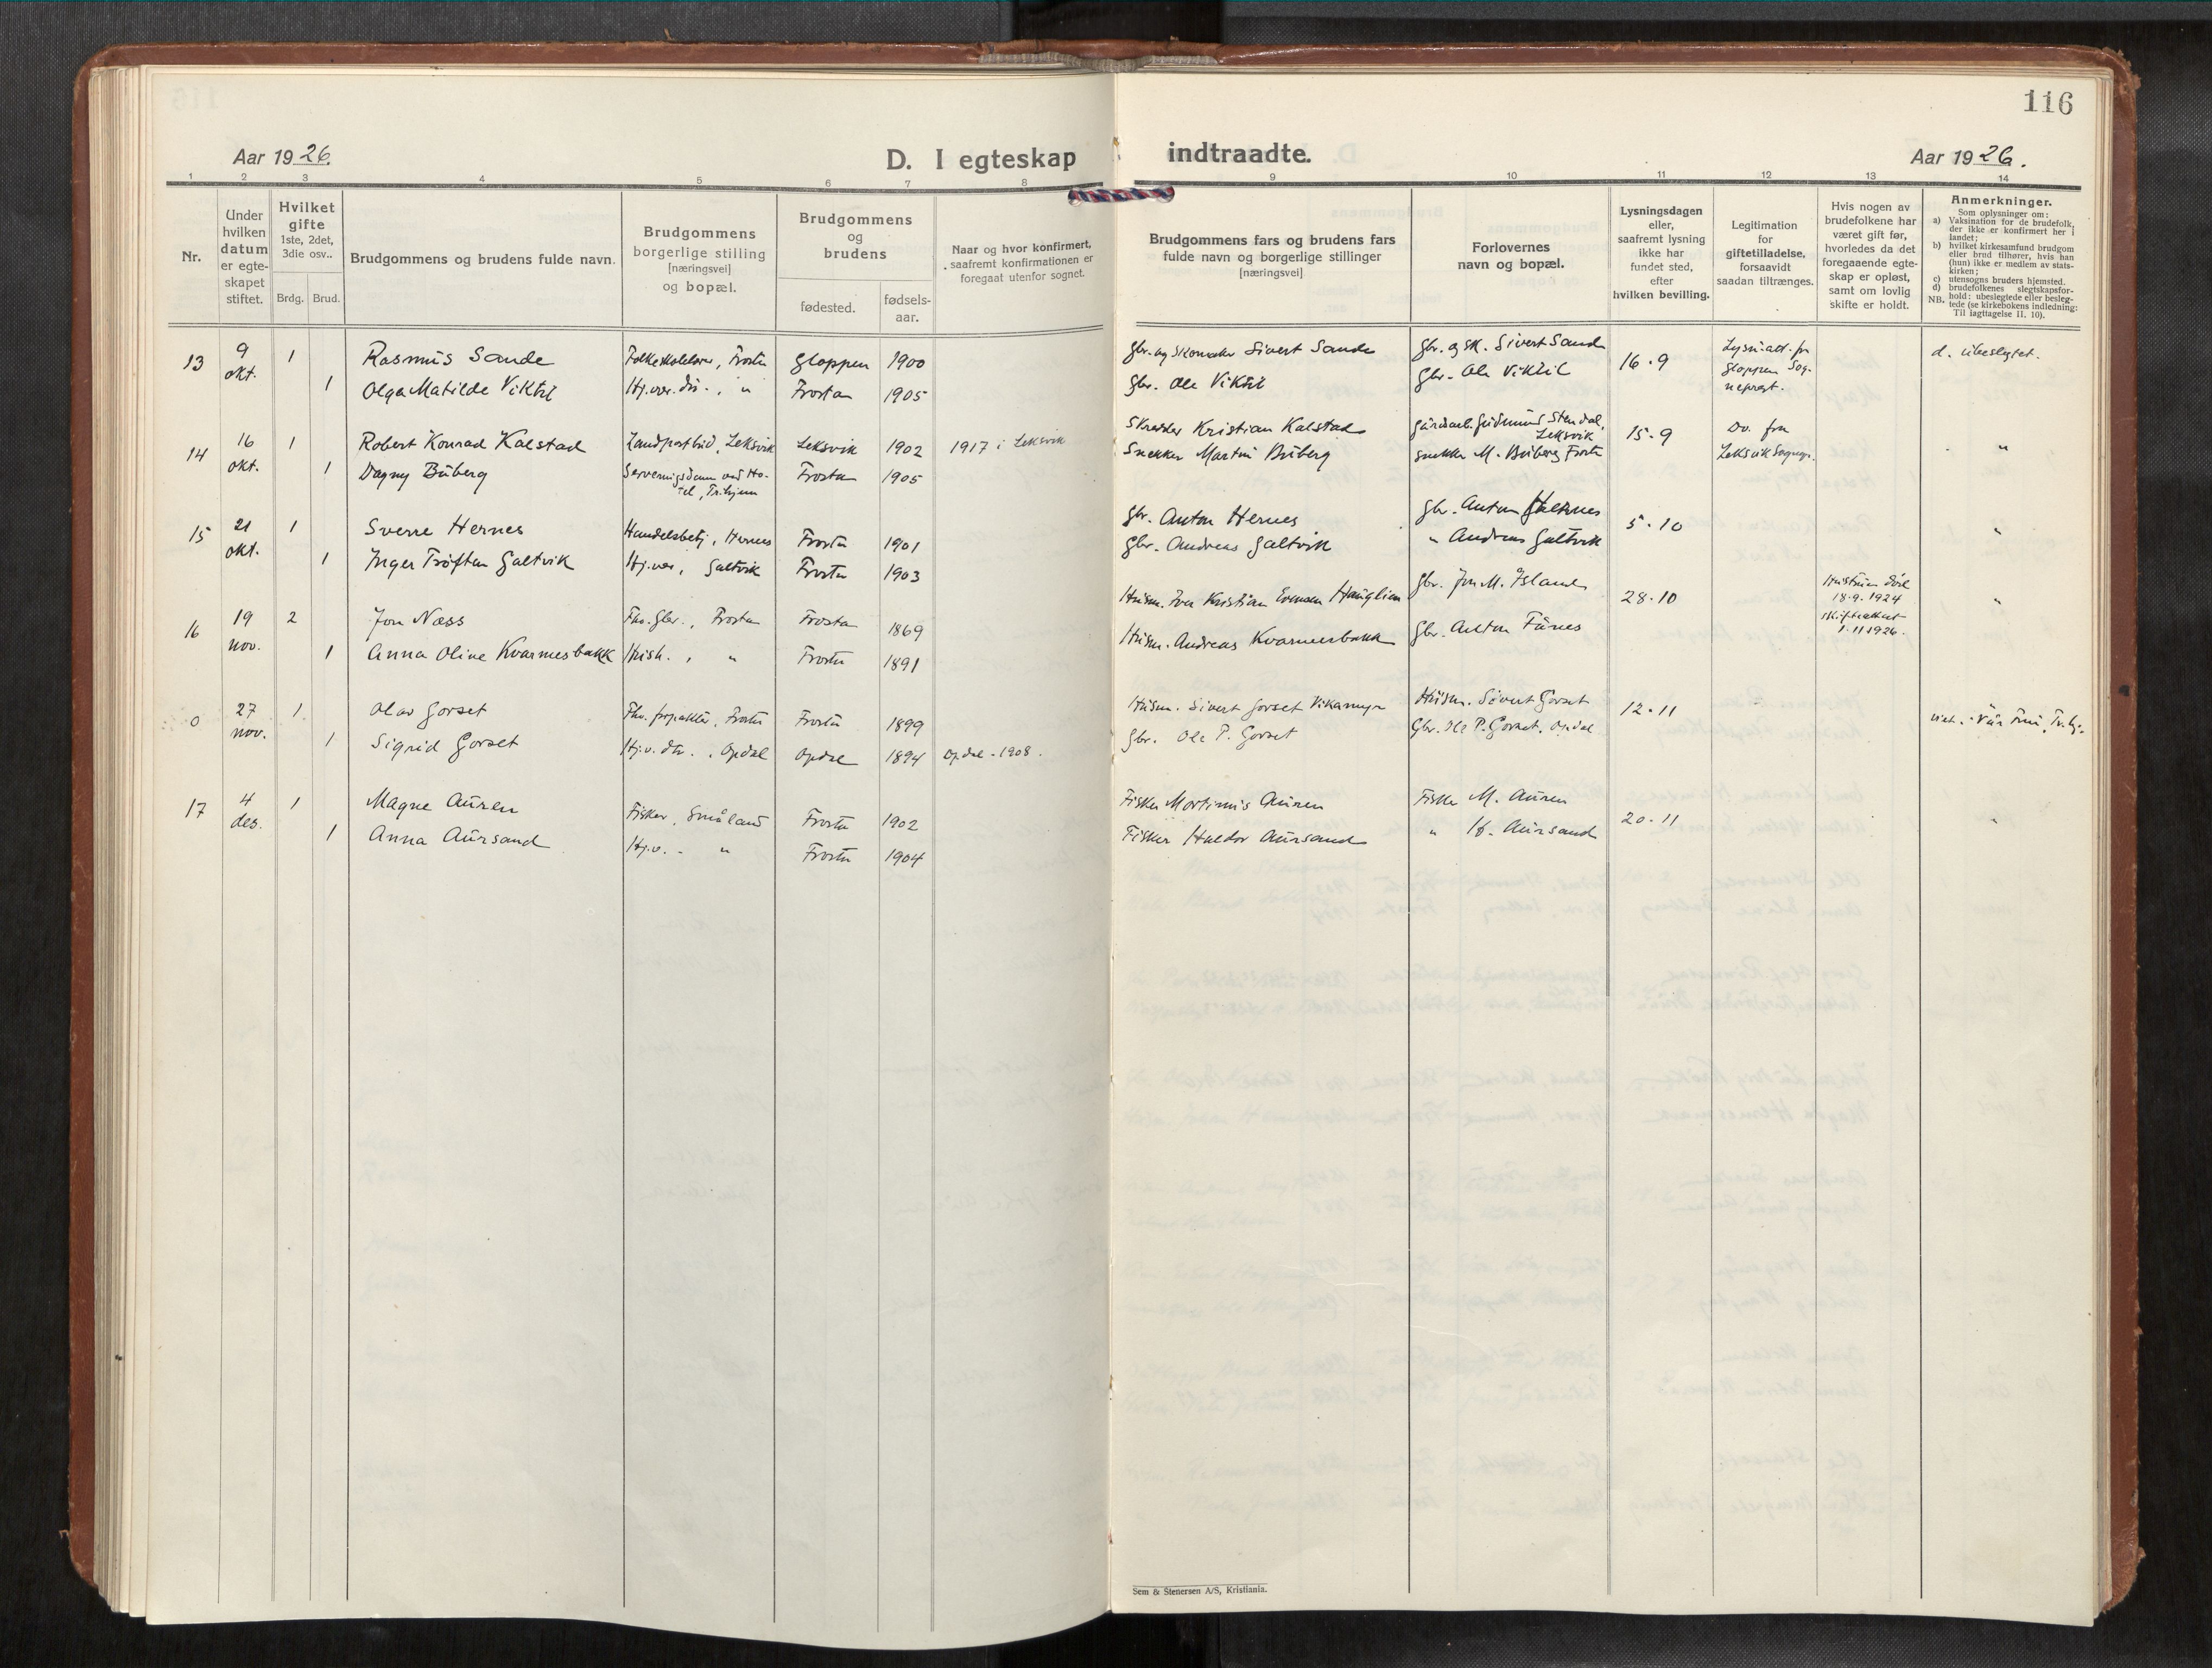 116
Aar 1926.
D. I egteskap indtraadte.
Aar 1926.
1 2 3 4 5 6 7 8 9 10 11 12 13 14
Nr.
Under
hvilken
datum
er egte-
skapet
stiftet.
Hvilket
gifte
1ste, 2det,
3die osv..
Brdg. Brud.
Brudgommens og brudens fulde navn.
Brudgommens
borgerlige stilling
[næringsvei]
og bopæl.
Brudgommens
og
brudens
fødested.
fødsels-
aar.
Naar og hvor konfirmert,
saafremt konfirmationen er
foregaat utenfor sognet.
Brudgommens fars og brudens fars
fulde navn og borgerlige stillinger
[næringsvei]
Forlovernes
navn og bopæl.
Lysningsdagen
eller,
saafremt lysning
ikke har
fundet sted,
efter
hvilken bevilling.
Legitimation
for
giftetilladelse,
forsaavidt
saadan tiltrænges.
Hvis nogen av
brudefolkene har
været gift før,
hvorledes da det
foregaaende egte-
skap er opløst,
samt om lovlig
skifte er holdt.
Anmerkninger.
Som oplysninger om:
a) Vaksination for de brudefolk,
der ikke er konfirmert her i
landet;
b) hvilket kirkesamfund brudgom
eller brud tilhører, hvis han
(hun) ikke er medlem av stats-
kirken;
c) utensogns bruders hjemsted.
d) brudefolkenes slegtskapsfor-
NB. hold: ubeslegtede eller besleg-
tede (se kirkebokens indledning:
Til iagttagelse II. 10).
13 9 okt. 1 Rasmus Sande Folkeskolelærer, Frosta Gloppen 1900 Gbr. og Skomaker Sivert Sande Gbr. og Sk. Sivert Sande 16-9 Lysn.att. fr. Gloppen Sogneprest. d. Ubeslegtet.
1 Olga Matilde Viktil Frostan 1905 Gbr. Ole Viktil Gbr. Ole Viktil
14 16 okt. 1 Robert Konrad Kalstad Landpostbud, Leksvik Leksvik 1902 1917 i Leksvik Skredder Kristian Kalstad Gudmund Stendal, Leksvik 15-9 Do. fra Leksvik Sognepr. "
1 Dagny Buberg Serveringsdame ved Hotel, Tr.hjem Frosta 1905 Snekker Martin Buberg Snekker M. Buberg Frosta
15 21 okt. 1 Sverre Hernes Handelsbetj., Hernes Frosta 1901 Gbr. Anton Hernes Gbr. Anton Hernes 5-10 "
1 Inger Trøftan Galtvik Hj.vær., Galtvik Frosta 1903 Gbr. Andreas Galtvik " Andreas Galtvik
16 19 nov. 2 Jon Næss Fhv. Gbr., Frosta Frosta 1869 Husm. Kristian Evensen Hauglien Gbr. Jon M. Island 28-10 Hustrun død 18.9.1924 skifteattest 1.11 1926. "
1 Anna Oline Kvarmesbakk Hush., " Frosta 1891 Husm. Andreas Kvarmesbakk Gbr. Anton Fånes
0 27 nov. 1 Olav Gorset Frosta Frosta 1899 Husm. Sivert Gorset Vikamyr Husm. Sivert Gorset 12-11 viet. i Vår Frue, Tr.hj.
1 Sigrid Gorset Hj.v. dtr., Opdal Opdal 1894 Opdal - 1908. Gbr. Ole P. Gorset Gbr. Ole P. Gorset. Opdal
17 4 des. 1 Magne Auren Fisker, Småland Frosta 1902 Fisker Mortinus Auren Fisker M. Auren 20-11 "
1 Anna Aursand Hj.v. - " Frosta 1904 Fisker Haldor Aursand " H. Aursand
Sem & Stenersen A/S, Kristiania.